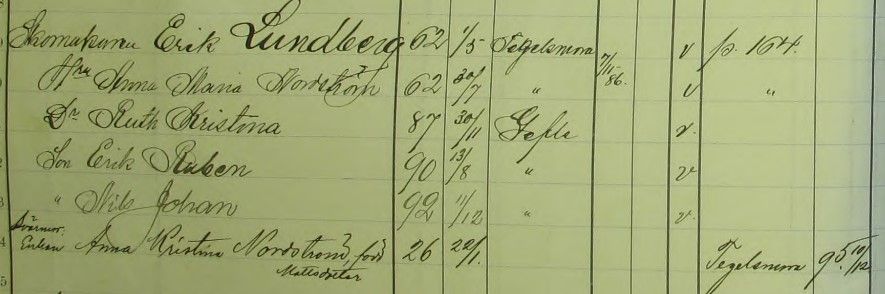 Skomakaren Erik Lundberg 62 1/5 Tegelsmora 7/11 86. v p. 164.
Hfru Anna Maria Nordström 62 30/7 " v "
Dr Ruth Kristina 87 30/11 Gefle v.
Son Erik Ruben 90 13/8 " v
" Nils Johan 92 11/12 " v.
Svärmor.
Enkan Anna Kristina Nordström, född 26 22/1. Tegelsmora 95 10/12
Mattsdotter